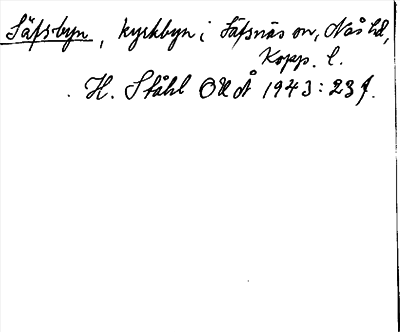 Säfsbyn, kyrkbyn i Säfsnäs sn, Nås hd,
Kopp. l.
H. Ståhl OUÅ 1943: 23 f.